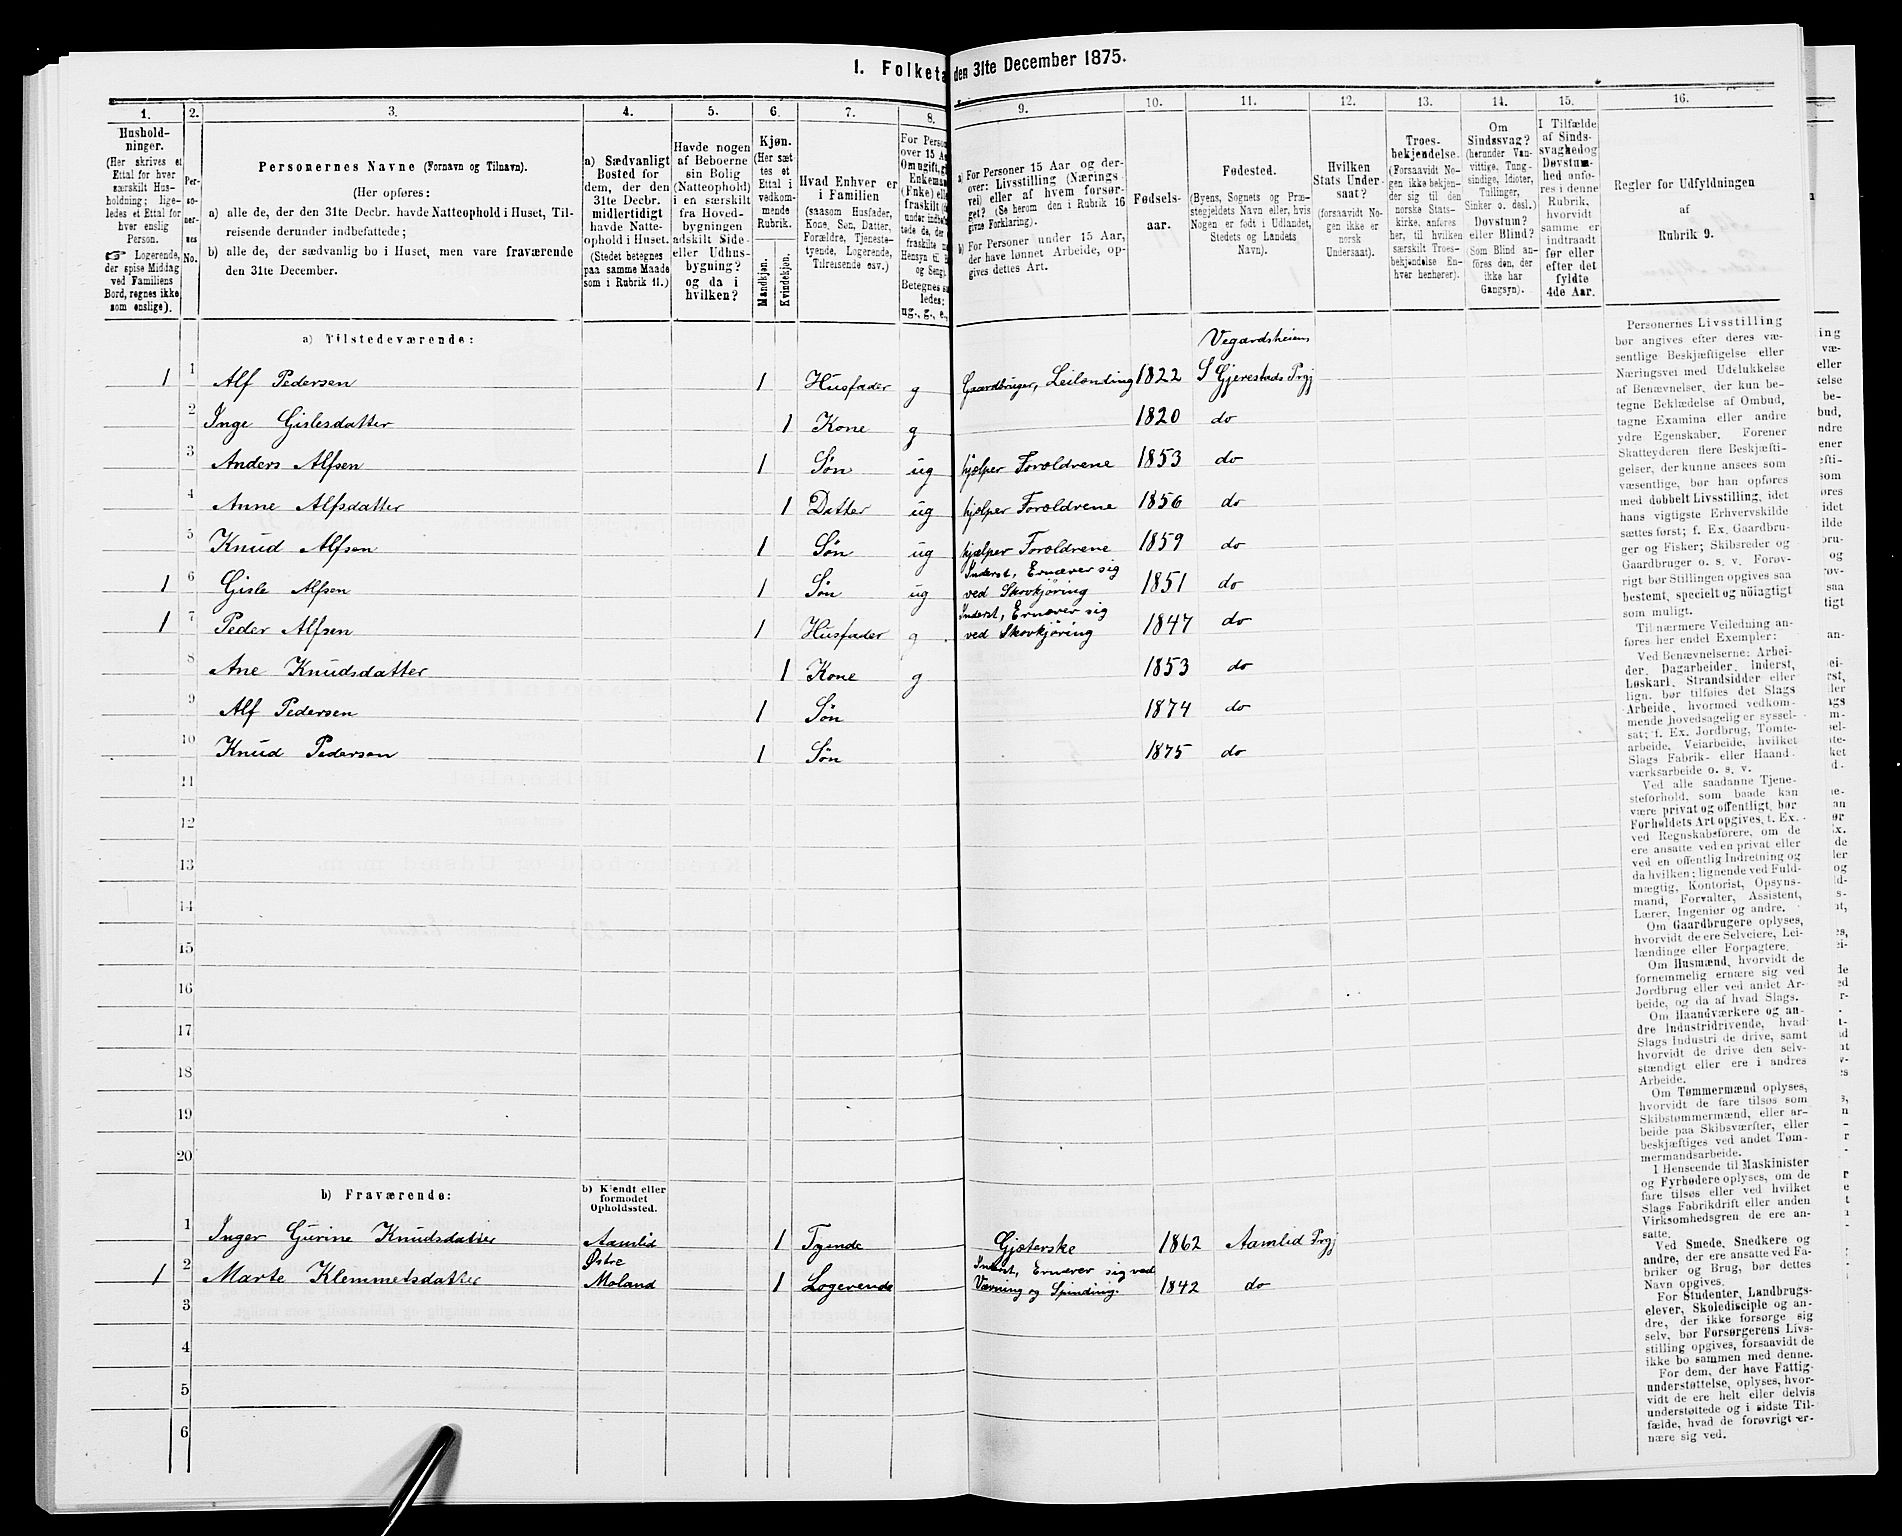 1. Folketa den 31te December 1875.
1. 2. 3. 4. 5. 6. 7. 8. 9. 10. 11. 12. 13. 14. 15. 16.
Hushold-
ninger.
(Her skrives et
Ettal for hver
særskilt Hus-
holdning; lige-
ledes et Ettal for
hver enslig
Person.
☞ Logerende,
der spise Middag
ved Familiens
Bord, regnes ikke
som enslige).
Per-
so-
ner-
nes
No.
Personernes Navne (Fornavn og Tilnavn).
(Her opføres:
a) alle de, der den 31te Decbr. havde Natteophold i Huset, Til-
reisende derunder indbefattede;
b) alle de, der sædvanlig bo i Huset, men vare fraværende
den 31te December.
a) Sædvanligt
Bosted for
dem, der den
31te Decbr.
midlertidigt
havde Natte-
ophold i Huset.
(Stedet betegnes
paa samme Maade
som i Rubrik 11.)
Havde nogen
af Beboerne
sin Bolig
(Natteophold)
i en særskilt
fra Hoved-
bygningen
adskilt Side-
eller Udhus-
bygning?
og da i
hvilken?
Kjøn.
(Her sæt-
tes et
Ettal i
vedkom-
mende
Rubrik.
Mandkjøn.
Kvindekjøn.
Hvad Enhver er
i Familien
(saasom Husfader,
Kone, Søn, Datter,
Forældre, Tjeneste-
tyende, Logerende,
Tilreisende osv.)
For Perso
over 15 A
Om ugift, gi
Enkema
(Fnke) elle
fraskilt
under indbe
tede de, de
fraskilte
Hensyn til
og Seng).
Betegnes s
ledes:
ug., g., e.,
a) For Personer 15 Aar og der-
over: Livsstilling (Nærings-
vei) eller af hvem forsør-
get? (Se herom den i Rubrik 16
givne Forklaring).
b) For Personer under 15 Aar,
der have lønnet Arbeide, op-
gives dettes Art.
Fødsels-
aar.
Fødested.
(Byens, Sognets og Præ-
stegjeldets Navn eller, hvis
Nogen er født i Udlandet,
Stedets og Landets
Navn).
Hvilken
Stats Under-
saat?
(forsaavidt No-
gen ikke er
norsk
Undersaat).
Troes-
bekjendelse.
(Forsaavidt No-
gen ikke bekjen-
der sig til den
norske Stats-
kirke, anføres
her, til hvilken
særskilt Troes-
bekjendelse En-
hver henhører).
Om
Sindssvag?
(herunder Van-
vittige, Tung-
sindige, Idioter,
Tullinger,
Sinker o. desl.)
Døvstum?
eller Blind?
(Som Blind an-
føres den, der
ikke har
Gangsyn).
I Tilfælde
af Sinds-
svaghed og
Døvstum-
hed anfø-
res i denne
Rubrik,
hvorvidt
samme er
indtraadt
før eller
efter det
fyldte
4de Aar.
Regler for Udfyldningen
af
Rubrik 9.
a) Tilstedeværende:
Vegardsheiens
1 1 Alf Pedersen 1 Husfader g Gaardbruger, Leilending 1822 S Gjerestads Prgj
2 Inge Gislesdatter 1 Kone g 1820 do
3 Anders Alfsen 1 Søn ug hjælper Forældrene 1853 do
4 Anne Alfsdatter 1 Datter ug hjælper Forældrene 1856 do
5 Knud Alfsen 1 Søn ug hjælper Forældrene 1859 do
Inderst, Ernærer sig
1 6 Gisle Alfsen 1 Søn ug ved Skovkjøring 1851 do
Inderst, Ernærer sig
1 7 Peder Alfsen 1 Husfader g ved Skovkjøring 1847 do
8 Ane Knudsdatter 1 Kone g 1853 do
9 Alf Pedersen 1 Søn 1874 do
10 Knud Pedersen 1 Søn 1875 do
11
12
13
14
15
16
17
18
19
20
b) Fraværende:
b) Kjendt eller
formodet
Opholdssted.
1 Inger Gurine Knudsdatter Aamlid 1 Tyende Gjæterske 1862 Aamlid Prgj
Østre Inderst, Ernærer sig ved
1 2 Marte Klemmetsdatter Moland 1 Logerende Vævning og Spinding. 1842 do
3
4
5
6
Personernes Livsstilling
bør angives efter deres væ-
sentlige Beskjæftigelse eller
Næringsvei med Udelukkelse
af Benævnelser, der kun be-
tegne Beklædelse af Ombud,
tagne Examina eller andre
ydre Egenskaber. Forener
Skatteyderen flere Beskjæfti-
gelser, der kunne ansees som
væsentlige, bør han opføres
med dobbelt Livsstilling, idet
hans vigtigste Erhvervskilde
sættes først; f. Ex. Gaardbru-
ger og Fisker; Skibsreder og
Gaardbruger o. s. v. Forøv-
rigt bør Stillingen opgives saa
bestemt, specielt og nøiagtigt
som muligt.
Til nærmere Veiledning an-
føres her endel Exempler:
Ved Benævnelserne: Arbei-
der, Dagarbeider, Inderst,
Løskarl, Strandsidder eller
lign. bør tilføies det Slags
Arbeide, hvormed vedkom-
mende hovedsagelig er syssel-
sat; f. Ex. Jordbrug, Tomte-
arbeide, Veiarbeide, hvilket
Slags Fabrik- eller Haand-
værksarbeide o. s. v.
Ved alle saadanne Tjene-
steforhold, som baade kan
være privat og offentligt, bør
Forholdets Art opgives, t. Ex.
ved Regnskabsførere, om de
ere ansatte ved en privat eller
ved en offentlig Indretning og
da hvilken; lignende ved Fuld-
mægtig, Kontorist, Opsyns-
mand, Forvalter, Assistent,
Lærer, Ingeniør og andre.
Om Gaardbrugere oplyses,
hvorvidt de ere Selveiere, Lei-
lændinge eller Forpagtere.
Om Husmænd, hvorvidt de
fornemmelig ernære sig ved
Jordbrug eller ved andet Ar-
beide, og da af hvad Slags.
Om Haandværkere og an-
dre Industridrivende, hvad
Slags Industri de drive, samt
hvorvidt de drive den selv-
stændigt eller ere i andres
Arbeide.
Om Tømmermænd oplyses,
hvorvidt de fare tilsøs som
Skibstømmermænd, eller ar-
beide paa Skibsværfter, eller
beskjæftiges ved andet Tøm-
mermandsarbeide.
I Henseende til Maskinister
og Fyrbødere oplyses, om de
fare tilsøs eller ved hvilket
Slags Fabrikdrift eller anden
Virksomhedsgren de ere an-
satte.
Ved Smede, Snedkere og
andre, der ere ansatte ved Fa-
briker og Brug, bør dettes
Navn opgives.
For Studenter, Landbrugs-
elever, Skoledisciple og an-
dre, der ikke forsørge sig
selv, bør Forsørgerens Livs-
stilling opgives, forsaavidt de
ikke bo sammen med denne.
For dem, der have Fattig-
understøttelse, oplyses, hvor-
vidt de ere helt eller delvis
understøttede og i sidste Til-
fælde, hvad de forøvrigt er-
nære sig ved.